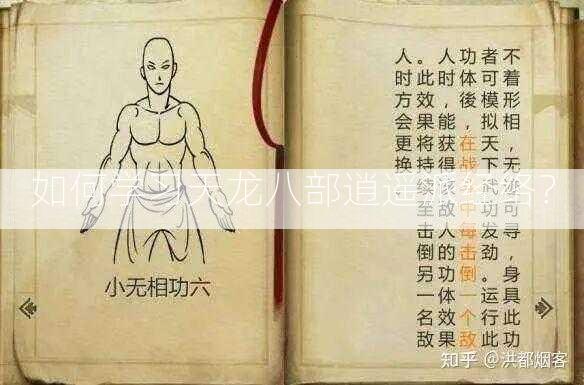 如何学习天龙八部逍遥派经络?
小无相功六
不着形相,无迹可寻,身具此功
者可模拟天下武功发劲。运行此
功体後,在战斗中每击倒一个敌
人时能获得该敌人的功体效果
。此效果将持续至击倒另一名敌
人时方会更换
知乎 @洪都烟客